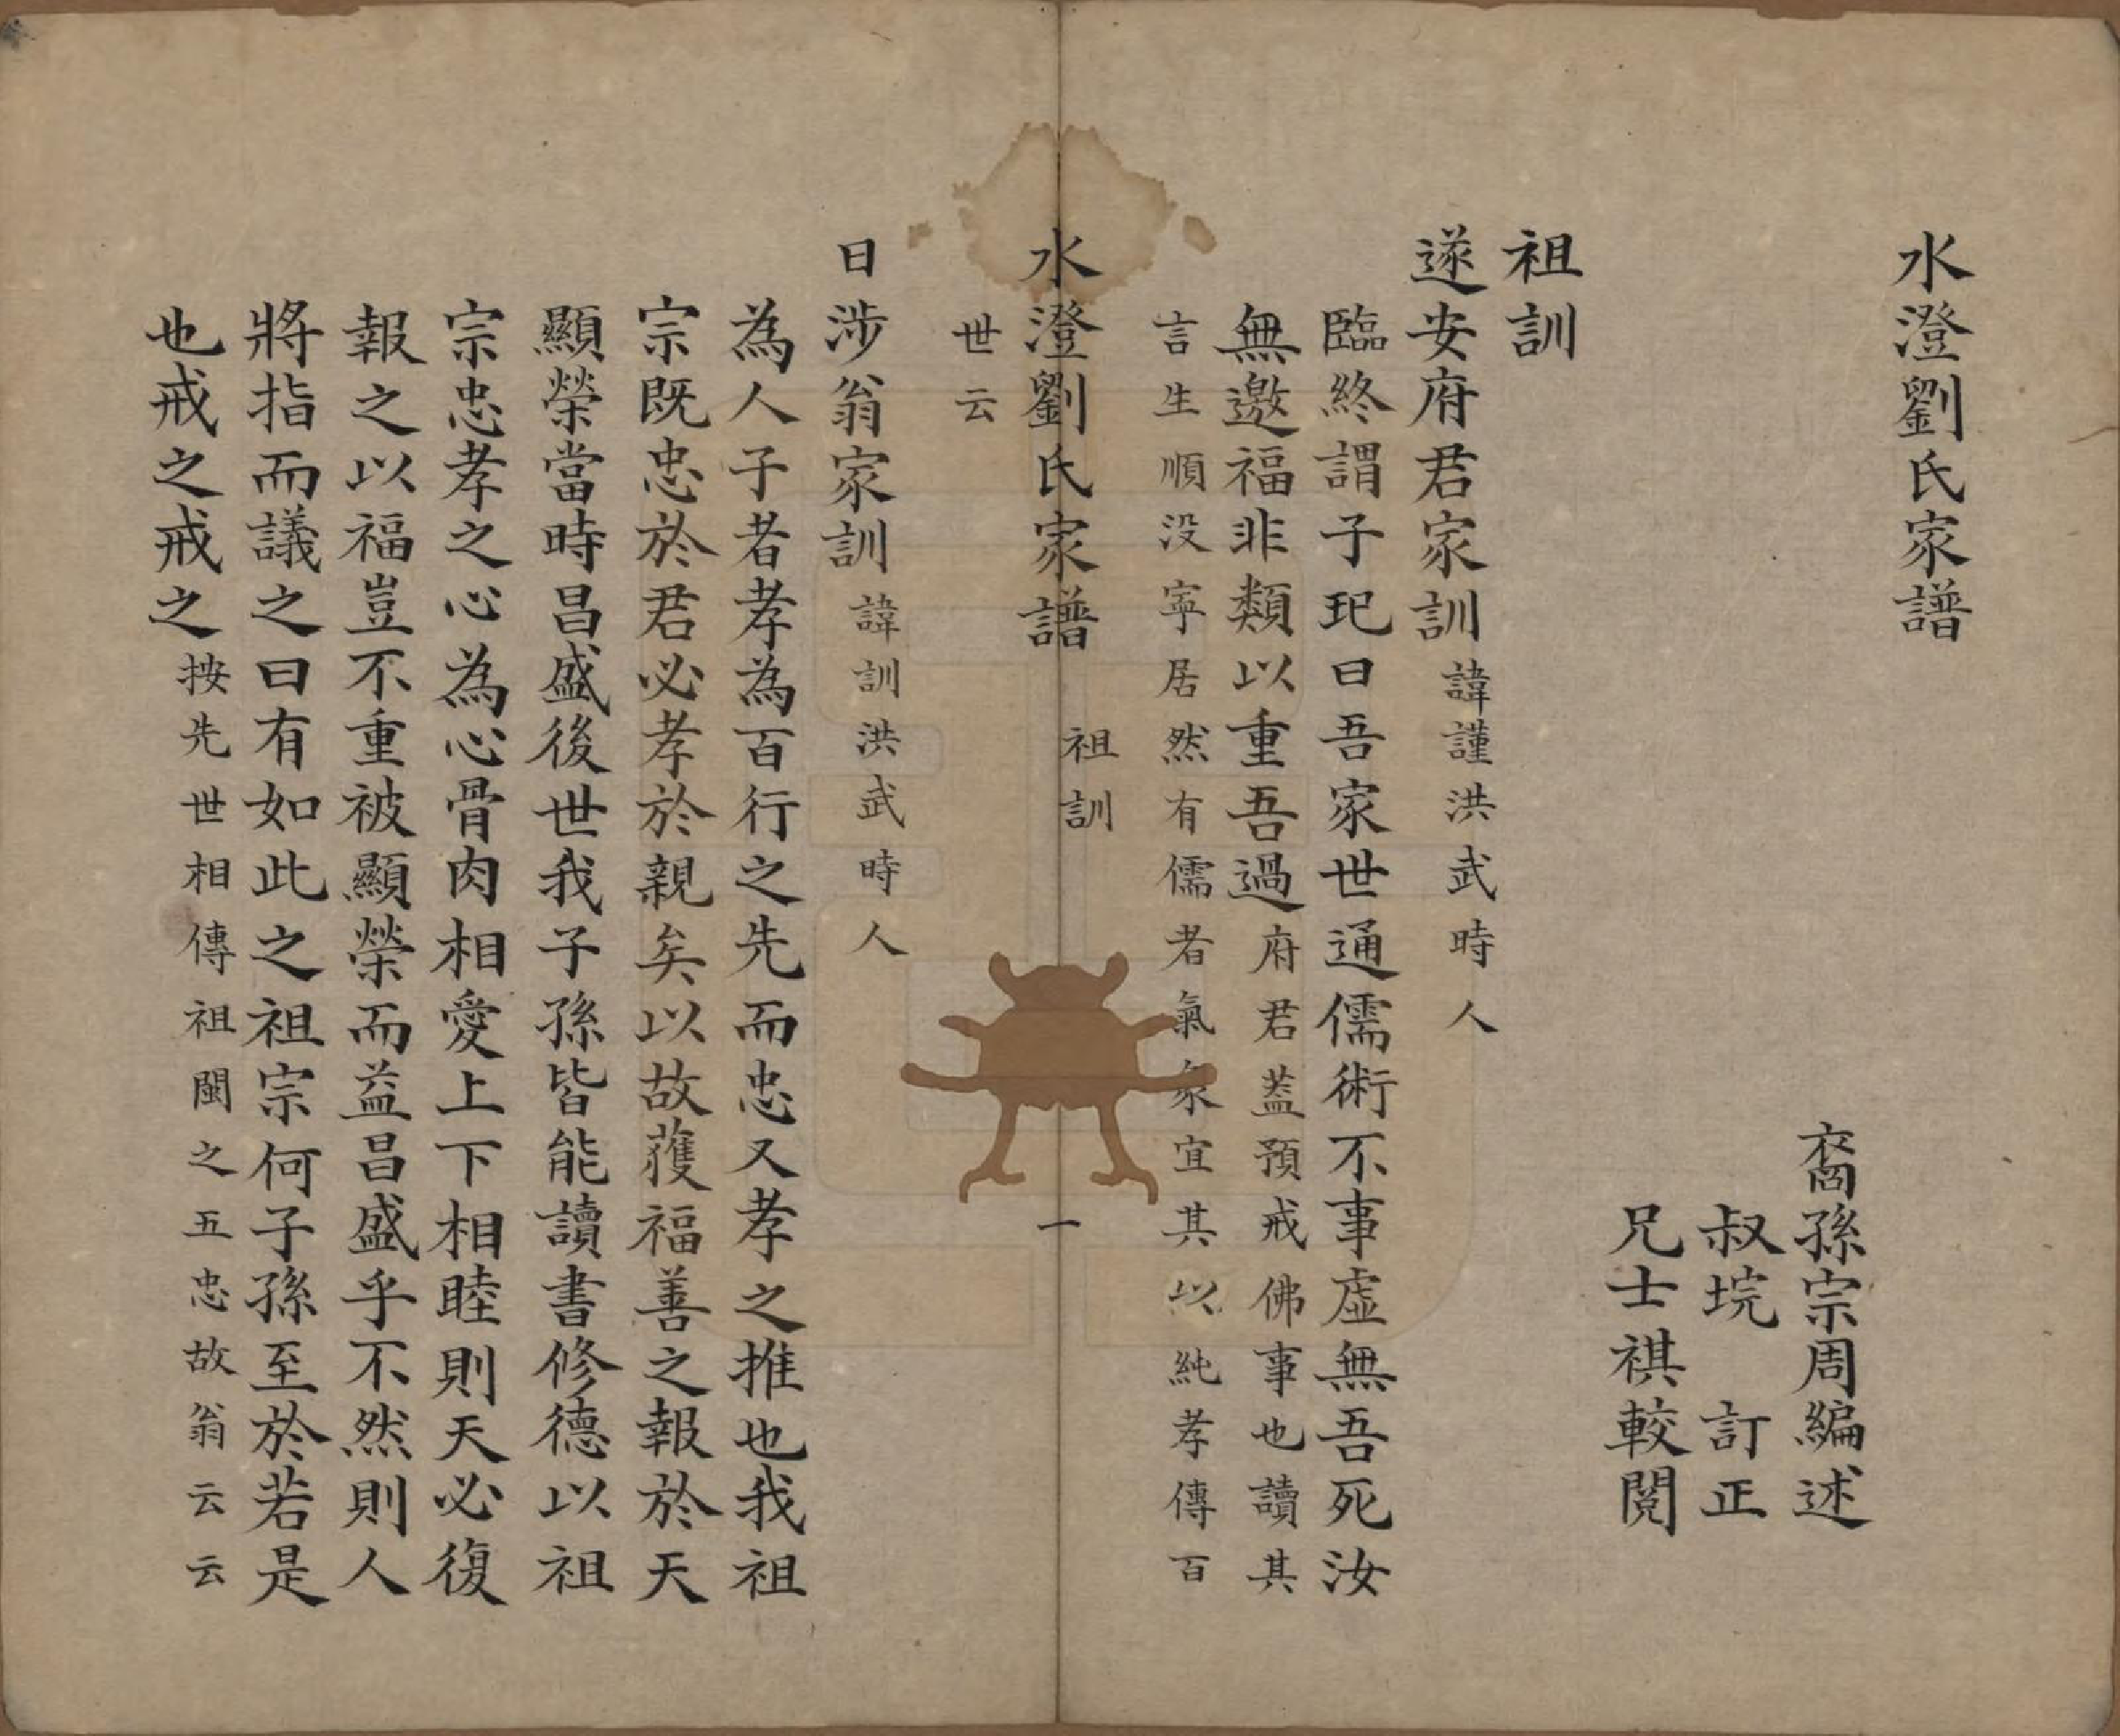 水澄劉氏家譜
裔孫宗周編述
叔垸 訂正
兄士祺較閱
祖訓
遂安府君家訓諱謹洪武時人
臨終謂子玘曰吾家世通儒術不事虛無吾死汝
無邀福非類以重吾過府君蓋預戒佛事也讀其
言生順没寧居然有儒者氣象宜其以純孝傳百
水澄劉氏家譜 祖訓 一
世云
日涉翁家訓諱訓洪武時人
為人子者孝為百行之先而忠又孝之推也我祖
宗既忠於君必孝於親矣以故獲福善之報於天
顯榮當時昌盛後世我子孫皆能讀書修德以祖
宗忠孝之心為心骨肉相愛上下相睦則天必復
報之以福豈不重被顯榮而益昌盛乎不然則人
將指而議之曰有如此之祖宗何子孫至於若是
也戒之戒之按先世相傳祖閩之五忠故翁云云